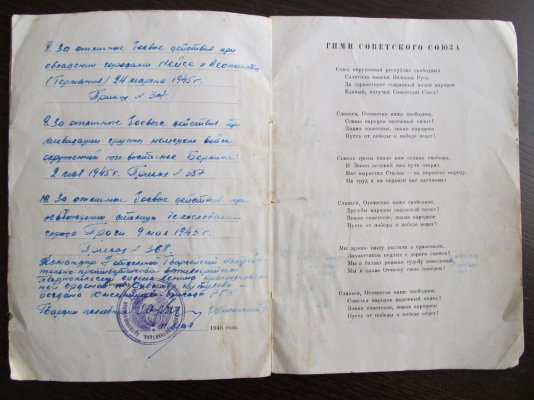 8. За отличные боевые действия при
овладении городами Нейсе и Леобшютц
(Германия) 24 марта 1945 г.
Приказ № 307.
9. За отличные боевые действия при
ликвидации группы немецких войск
окружённой юго восточнее Берлина
2 мая 1945 г. Приказ № 357
10. За отличные боевые действия при
освобождении столицы Чехословакии
города Праги 9 мая 1945 г.
Приказ № 368.
ордена Ленина
ордена Суворова Кутузова
бригады РГК
Гвардии
1945 года.
ГИМН СОВЕТСКОГО СОЮЗА
Союз нерушимый республик свободных
Сплотила навеки Великая Русь.
Да здравствует созданный волей народов
Единый, могучий Советский Союз!
Славься, Отечество наше свободное,
Славы народов надежный оплот!
Знамя советское, знамя народное
Пусть от победы к победе ведет!
Сквозь грозы сияло нам солнце свободы,
И Ленин великий нам путь озарил.
Нас вырастил Сталин — на верность народу,
На труд и на подвиги нас вдохновил.
Славься, Отечество наше свободное,
Дружбы народов надежный оплот!
Знамя советское, знамя народное
Пусть от победы к победе ведет!
Мы армию нашу растили в сраженьях,
Захватчиков подлых с дороги сметем!
Мы в битвах решаем судьбу поколений,
Мы к славе Отчизну свою поведем!
Славься, Отечество наше свободное,
Счастья народов надежный оплот!
Знамя советское, знамя народное
Пусть от победы к победе ведет!